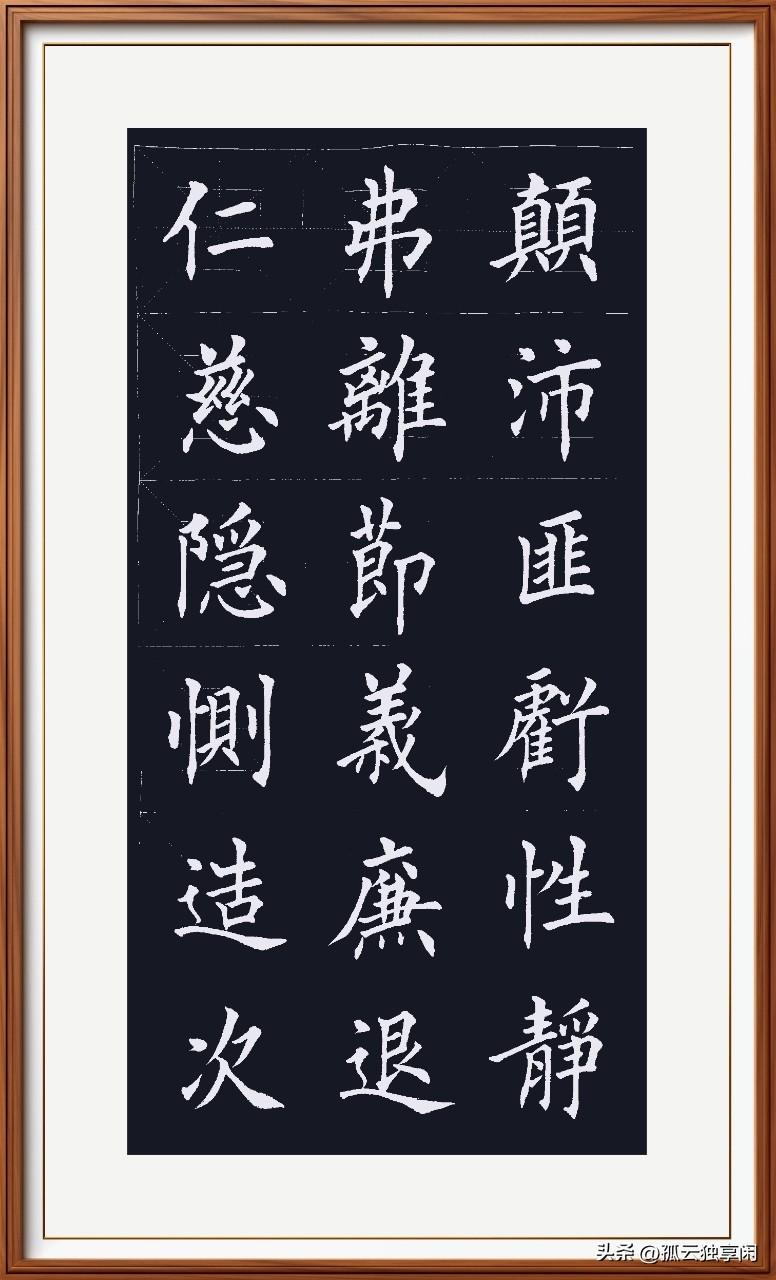 仁慈隠惻造次
弗離莭義廉退
顛沛匪虧性靜
头条 @孤云独享闲